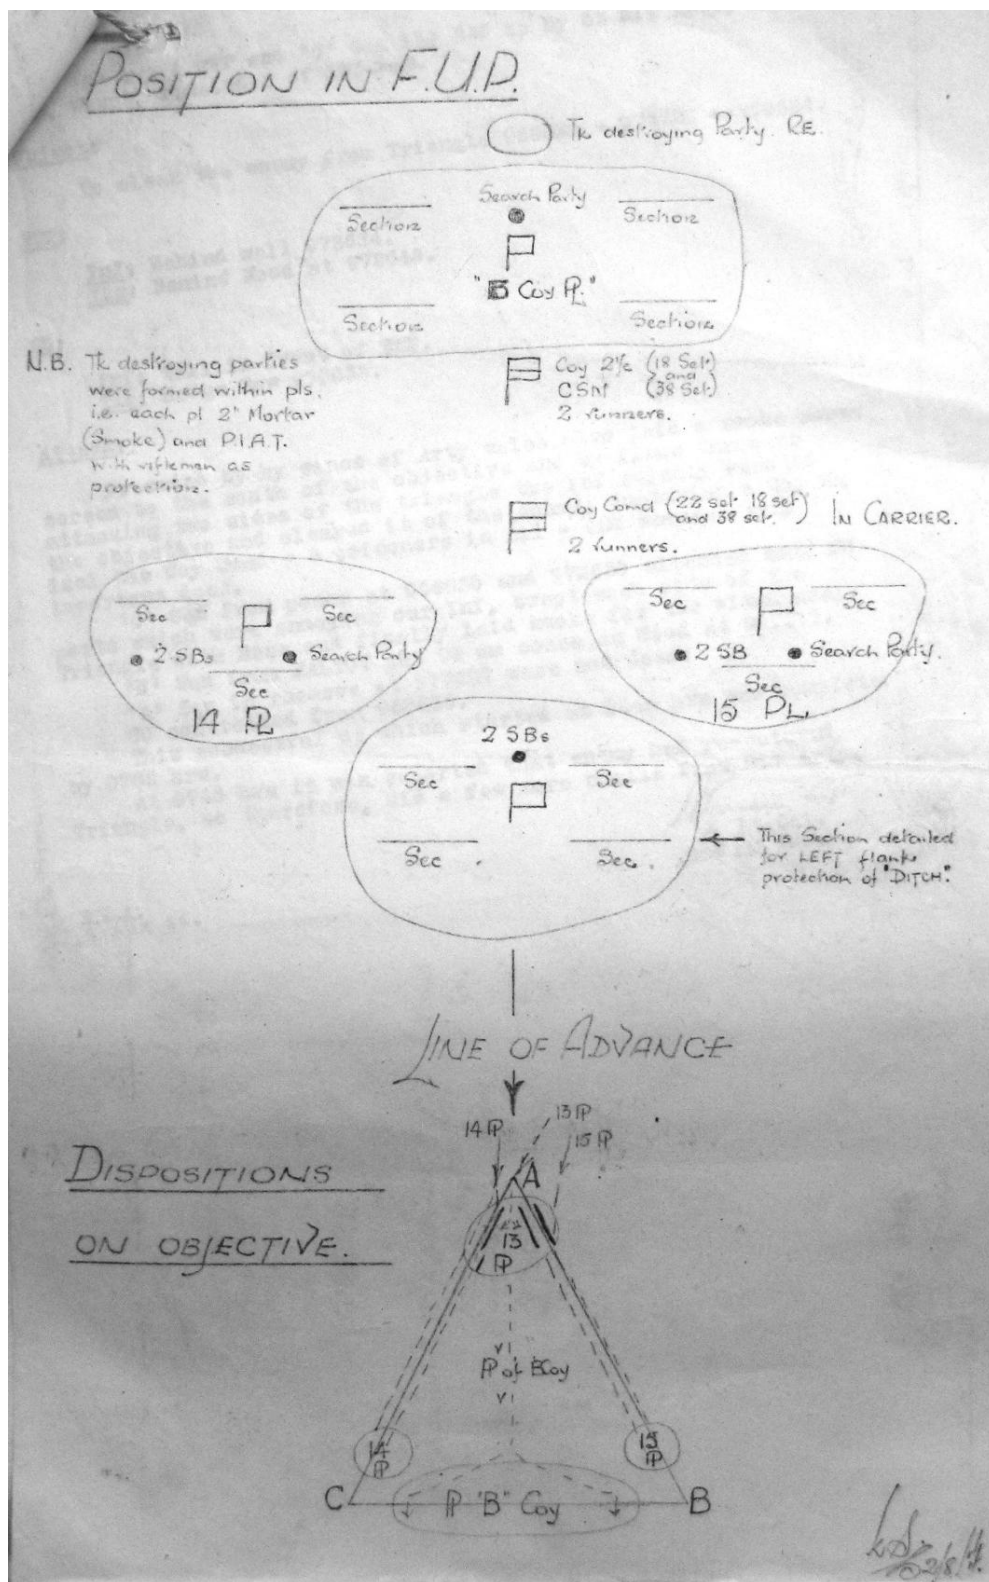 POSITION IN F.U.P.
Tk destroying Party. RE.
Search Party
Section
Section
"B Coy PL."
Section
Section
N.B. Tk destroying parties
were formed within pls.
i.e. each pl 2" Mortar
(Smoke) and P.I.A.T.
with rifleman as
protection.
Coy 2i/c (18 Set)
and
CSM (38 Set)
2 runners.
Coy Comd (22 set 18 set
and 38 set.) IN CARRIER.
2 runners.
Sec
Sec
2 SBs
Search Party
Sec
14 PL
Sec
Sec
2 SB
Search Party.
Sec
15 PL
2 SBs
Sec
Sec
Sec
Sec.
This Section detailed
for LEFT flank
protection of "DITCH".
LINE OF ADVANCE
14 Pl
13 Pl
15 Pl
DISPOSITIONS
ON OBJECTIVE.
A
13
Pl
Pl of B Coy
14
Pl
15
Pl
C
Pl "B" Coy
B